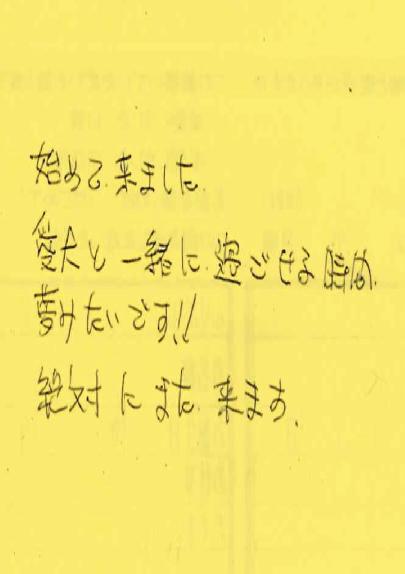 始めて来ました。
愛犬と一緒に過ごせる時が、
夢みたいです!!
絶対にまた来ます。